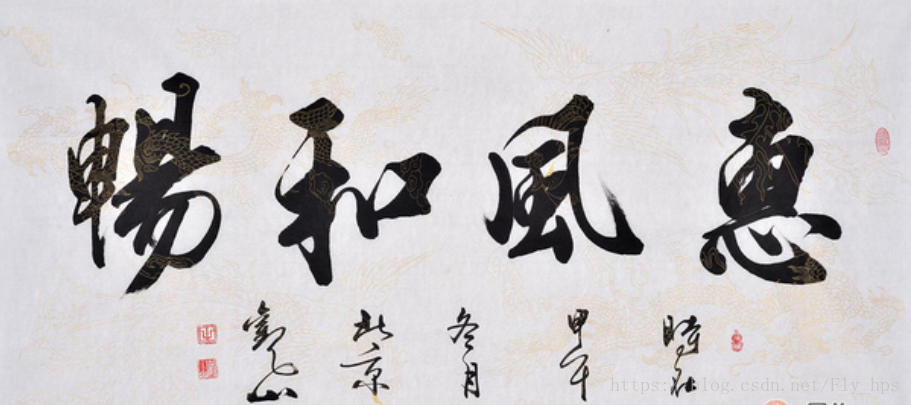 惠風和暢
時在
甲午
冬月
北京
https://blog.csdn.net/Fly_hps